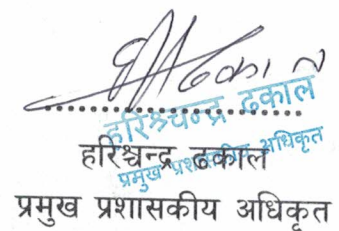 ढकाल
हरिश्चन्द्र ढकाल
प्रमुख प्रशासकीय अधिकृत
हरिश्चन्द्र ढकाल
प्रमुख प्रशासकीय अधिकृत